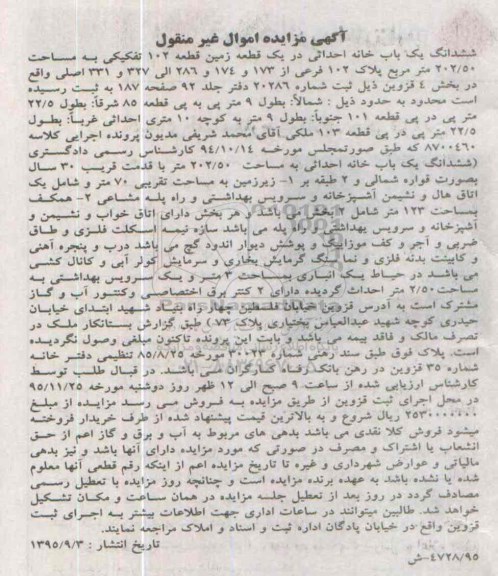 آگهی مزایده اموال غیر منقول
ششدانگ یک باب خانه احداثی در یک قطعه زمین قطعه ۱۰۲ تفکیکی به مساحت
۲۰۲/۵۰ متر مربع پلاک ۱۰۲ فرعی از ۱۷۳ و ۱۷۴ و ۲۸۶ الی ۳۲۷ و ۳۳۱ اصلی واقع
در بخش ٤ قزوین ذیل ثبت شماره ۲۰۲۸۶ دفتر جلد ۹۲ صفحه ۱۸۷ به ثبت رسیده
است محدود به حدود ذیل : شمالاً: بطول ۹ متر پی به پی قطعه ۸۵ شرقاً: بطول ۲۲/۵
متر پی در پی قطعه ۱۰۱ جنوباً: بطول ۹ متر به کوچه ۱۰ متری احداثی غرباً: بطول
۲۲/۵ متر پی در پی قطعه ۱۰۳ ملکی آقای محمد شریفی مدیون پرونده اجرایی کلاسه
۸۷۰۰۴۶۰ که طبق صورتمجلس مورخه ۹۴/۱۰/۱۴ کارشناس رسمی دادگستری
(ششدانگ یک باب خانه احداثی به مساحت ۲۰۲/۵۰ متر با قدمت قریب ۳۰ سال
بصورت قواره شمالی و ۲ طبقه بر ۱- زیرزمین به مساحت تقریبی ۷۰ متر و شامل یک
اتاق هال و نشیمن آشپزخانه و سرویس بهداشتی و راه پله مشاعی ۲- همکف
بمساحت ۱۲۳ متر شامل ۲ بخش می باشد و هر بخش دارای اتاق خواب و نشیمن و
آشپزخانه و سرویس بهداشتی و راه پله می باشد سازه نیمه اسکلت فلزی و طاق
ضربی و آجر و کف موزاییک و پوشش دیوار اندود گچ می باشد درب و پنجره آهنی
و کابینت بدنه فلزی و نما سنگ گرمایش بخاری و سرمایش کولر آبی و کانال کشی
می باشد در حیاط یک انباری بمساحت ۳ متر و یک سرویس بهداشتی به
مساحت ۲/۵۰ متر احداث گردیده دارای ۲ کنتر برق اختصاصی وکنتور آب و گاز
مشترک است به آدرس قزوین خیابان فلسطین چهار راه بنیاد شهید ابتدای خیابان
حیدری کوچه شهید عبدالعباس بختیاری پلاک ۷۳) طبق گزارش بستانکار ملک در
تصرف مالک و فاقد بیمه می باشد و بابت این پرونده تاکنون مبلغی وصول نگردیده
است. پلاک فوق طبق سند رهنی شماره ۳۰۰۲۳ مورخه ۸۵/۸/۲۵ تنظیمی دفتر خانه
شماره ۳۵ قزوین در رهن بانک رفاه کارگران می باشد. در قبال طلب توسط
کارشناس ارزیابی شده از ساعت ۹ صبح الی ۱۲ ظهر روز دوشنبه مورخه ۹۵/۱۱/۲۵
در محل اجرای ثبت قزوین از طریق مزایده به فروش می رسد مزایده از مبلغ
۲۵۳۰۰۰۰۰۰۰ ریال شروع و به بالاترین قیمت پیشنهاد شده از طرف خریدار فروخته
میشود فروش کلا نقدی می باشد بدهی های مربوط به آب و برق و گاز اعم از حق
انشعاب یا اشتراک و مصرف در صورتی که مورد مزایده دارای آنها باشد و نیز بدهی
مالیاتی و عوارض شهرداری و غیره تا تاریخ مزایده اعم از اینکه رقم قطعی آنها معلوم
شده یا نشده باشد به عهده برنده مزایده است و چنانچه روز مزایده با تعطیل رسمی
مصادف گردد در روز بعد از تعطیل جلسه مزایده در همان ساعت و مکان تشکیل
خواهد شد. طالبین میتوانند در ساعات اداری جهت اطلاعات بیشتر به اجرای ثبت
قزوین واقع در خیابان پادگان اداره ثبت و اسناد و املاک مراجعه نمایند.
تاریخ انتشار : ۱۳۹۵/۹/۳
۴۷۲۸/۹۵-ش